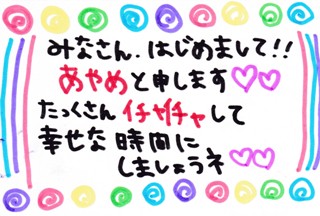 みなさん、はじめまして!!
あやめと申します♡♡
たっくさんイチャイチャして
幸せな時間に
しましょうネ♡♡